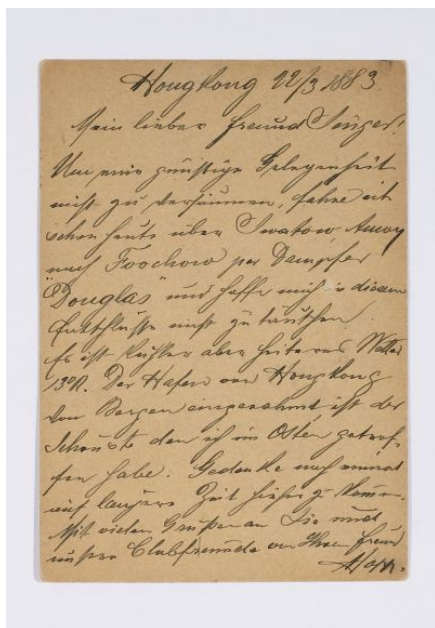 Hongkong 22/3 1883
Mein lieber Freund Singer!
Um eine günstige Gelegenheit
nicht zu versäumen, fahre ich
schon heute über Swatow Amoy
nach Foochow per Dampfer
"Douglas" und hoffe mich in diesem
Entschlusse nicht zu täuschen.
Es ist kühles aber heiteres Wetter
13°R. Der Hafen von Hongkong
von Bergen eingerahmt, ist der
schönste den ich im Osten getrof-
fen habe. Gedenke noch einmal
auf längere Zeit hieher z. kommen.
Mit vielen Grüßen an Sie und
unsere Clubfreunde von Ihrem Freund